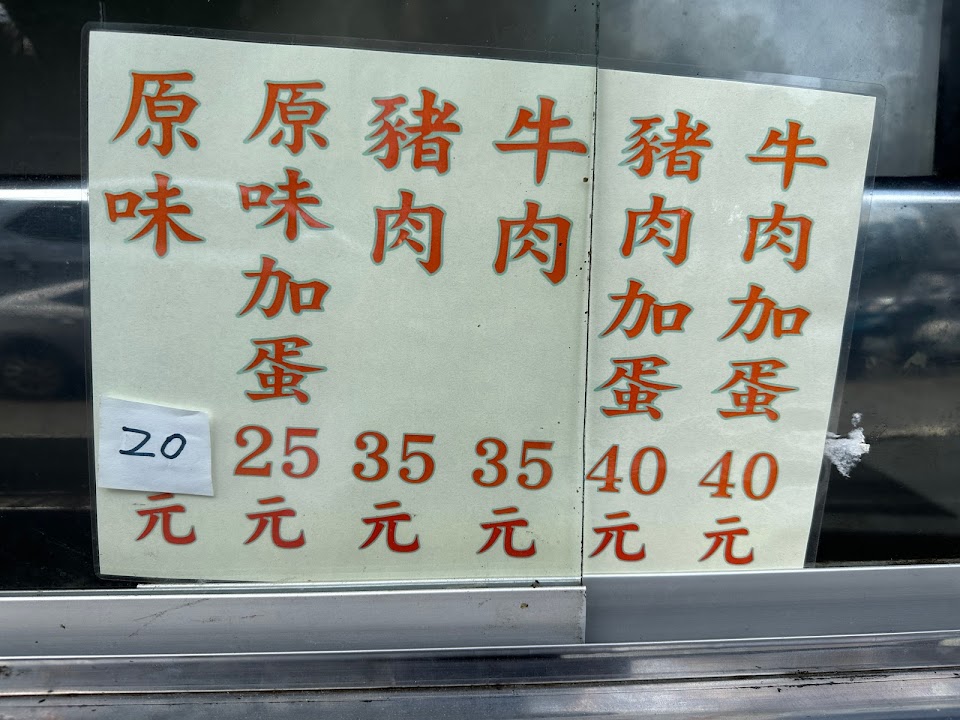 原味 20 元
原味加蛋 25 元
豬肉 35 元
牛肉 35 元
豬肉加蛋 40 元
牛肉加蛋 40 元